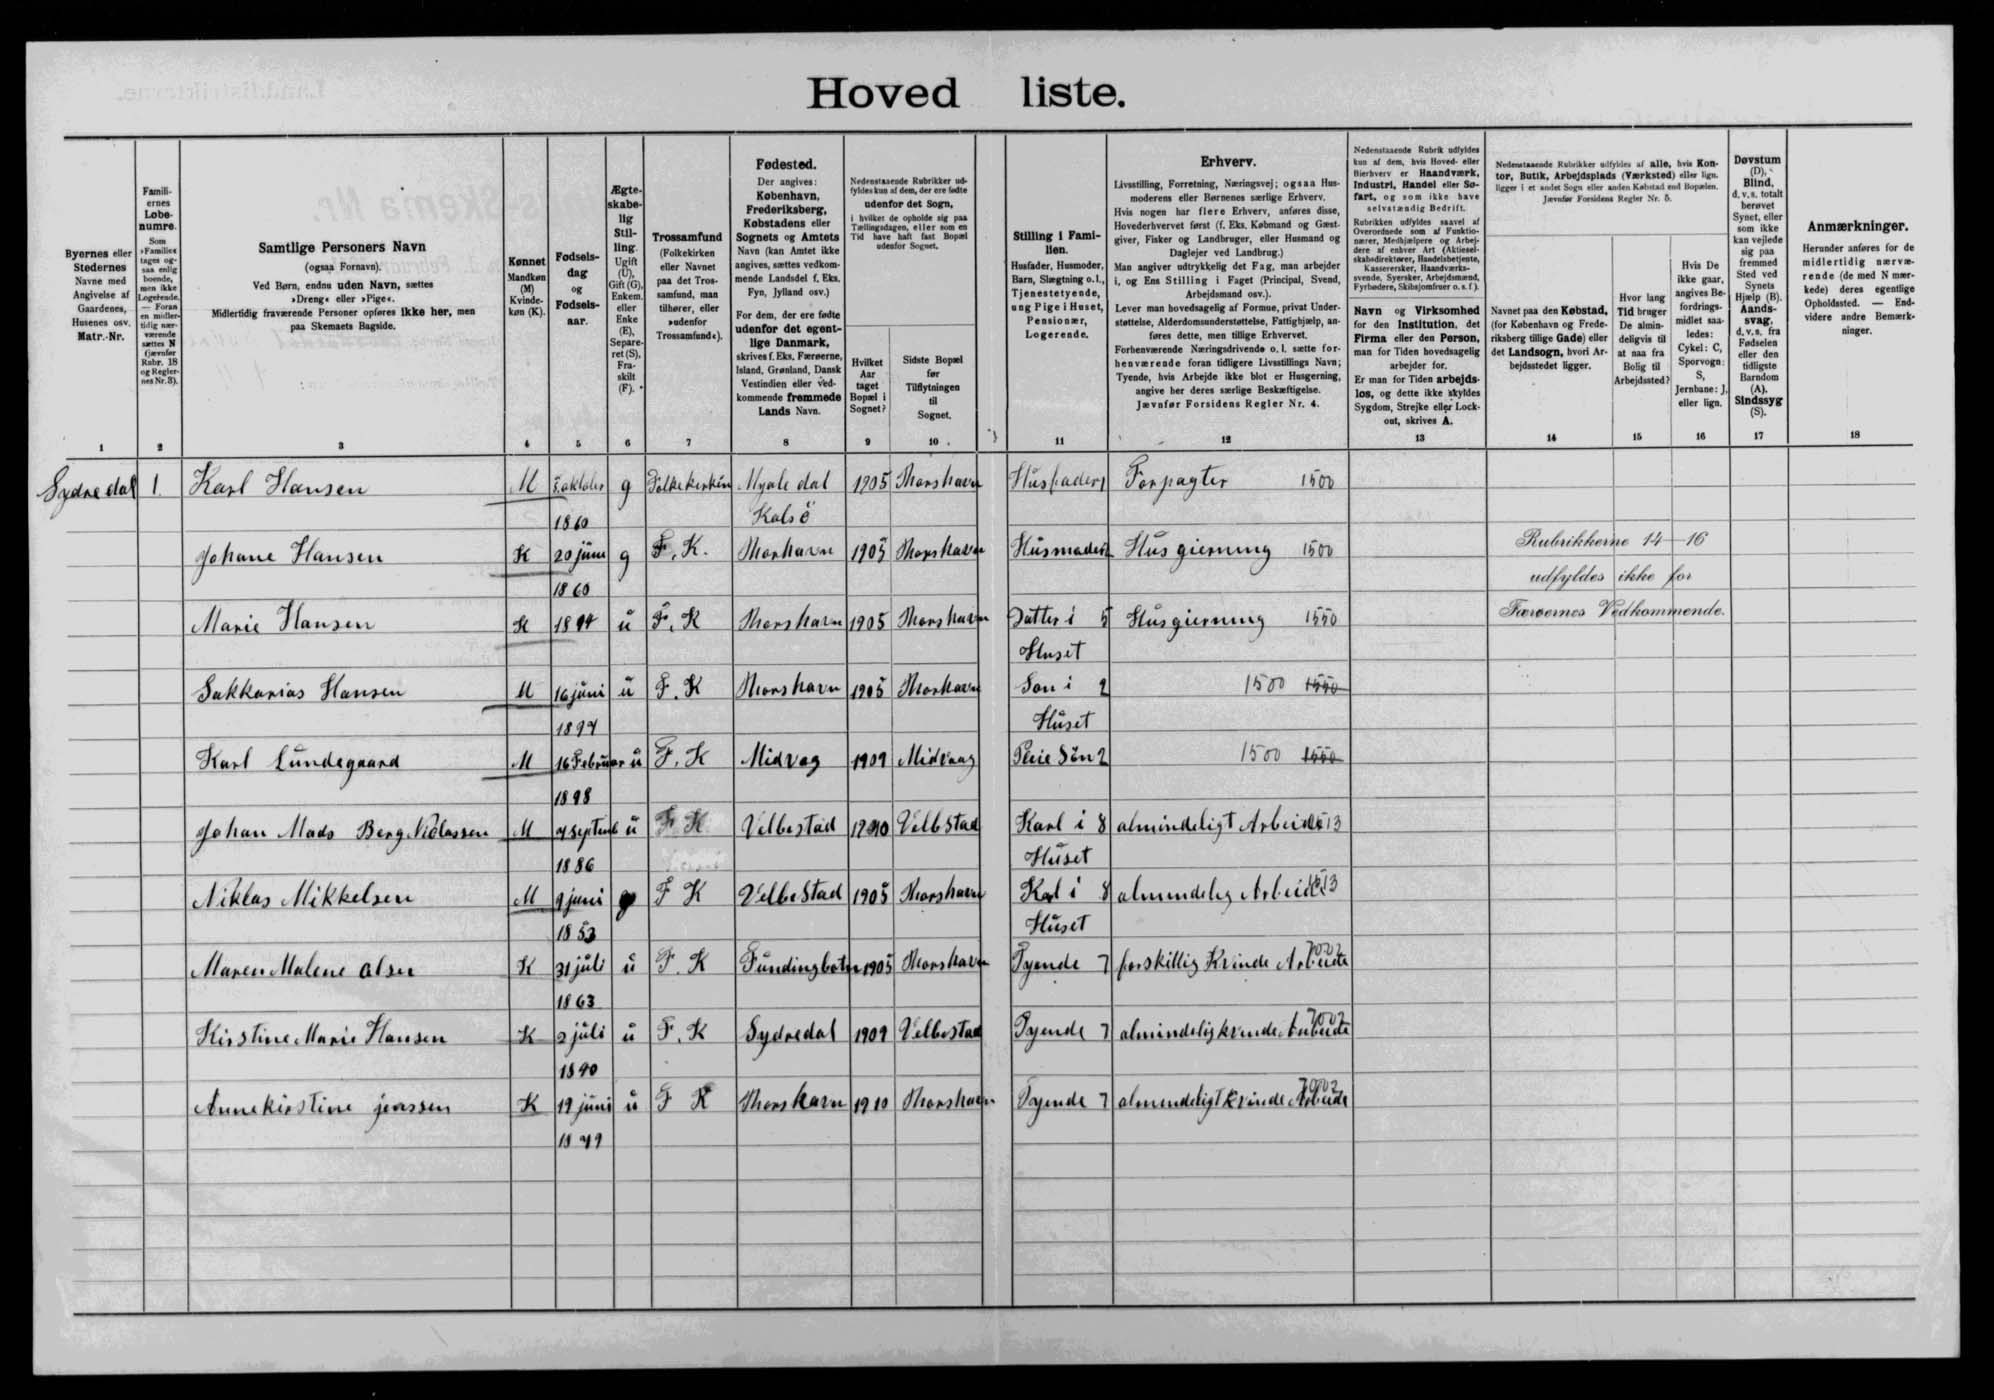 Hoved liste.
Byernes eller
Stedernes
Navne med
Angivelse af
Gaardenes,
Husenes osv.
Matr.-Nr.
Famili-
ernes
Løbe-
numre.
Som
»Familie«
tages og-
saa enlig
boende,
men ikke
Logerende.
— Foran
en midler-
tidig nær-
værende
sættes N
(jævnfør
Rubr. 18
og Regler-
nes Nr. 3).
Samtlige Personers Navn
(ogsaa Fornavn).
Ved Børn, endnu uden Navn, sættes
»Dreng« eller »Pige«.
Midlertidig fraværende Personer opføres ikke her, men
paa Skemaets Bagside.
Kønnet
Mandkøn
(M)
Kvinde-
køn (K).
Fødsels-
dag
og
Fødsels-
aar.
Ægte-
skabe-
lig
Stil-
ling.
Ugift
(U),
Gift (G),
Enkem.
eller
Enke
(E),
Separe-
ret (S),
Fra-
skilt
(F).
Trossamfund
(Folkekirken
eller Navnet
paa det Tros-
samfund, man
tilhører, eller
»udenfor
Trossamfund«).
Fødested.
Der angives:
København,
Frederiksberg,
Købstadens eller
Sognets og Amtets
Navn (kan Amtet ikke
angives, sættes vedkom-
mende Landsdel f. Eks.
Fyn, Jylland osv.)
For dem, der ere fødte
udenfor det egent-
lige Danmark,
skrives f. Eks. Færøerne,
Island, Grønland, Dansk
Vestindien eller ved-
kommende fremmede
Lands Navn.
Nedenstaaende Rubrikker ud-
fyldes kun af dem, der ere fødte
udenfor det Sogn,
i hvilket de opholde sig paa
Tællingsdagen, eller som en
Tid have haft fast Bopæl
udenfor Sognet.
Hvilket
Aar
taget
Bopæl i
Sognet?
Sidste Bopæl
før
Tilflytningen
til
Sognet.
Stilling i Fami-
lien.
Husfader, Husmoder,
Barn, Slægtning o.l.,
Tjenestetyende,
ung Pige i Huset,
Pensionær,
Logerende.
Erhverv.
Livsstilling, Forretning, Næringsvej; ogsaa Hus-
moderens eller Børnenes særlige Erhverv.
Hvis nogen har flere Erhverv, anføres disse,
Hovederhvervet først (f. Eks. Købmand og Gæst-
giver, Fisker og Landbruger, eller Husmand og
Daglejer ved Landbrug.)
Man angiver udtrykkelig det Fag, man arbejder
i, og Ens Stilling i Faget (Principal, Svend,
Arbejdsmand osv.).
Lever man hovedsagelig af Formue, privat Under-
støttelse, Alderdomsunderstøttelse, Fattighjælp, an-
føres dette, men tillige Erhvervet.
Forhenværende Næringsdrivende o. l. sætte for-
henværende foran tidligere Livsstillings Navn;
Tyende, hvis Arbejde ikke blot er Husgerning,
angive her deres særlige Beskæftigelse.
Jævnfør Forsidens Regler Nr. 4.
Nedenstaaende Rubrik udfyldes
kun af dem, hvis Hoved- eller
Bierhverv er Haandværk,
Industri, Handel eller Sø-
fart, og som ikke have
selvstændig Bedrift.
Rubrikken udfyldes saavel af
Overordnede som af Funktio-
nærer, Medhjælpere og Arbej-
dere af enhver Art (Aktiesel-
skabsdirektører, Handelsbetjente,
Kasserersker, Haandværks-
svende, Syersker, Arbejdsmænd,
Fyrbødere, Skibsjomfruer o. s. f.).
Navn og Virksomhed
for den Institution, det
Firma eller den Person,
man for Tiden hovedsagelig
arbejder for.
Er man for Tiden arbejds-
løs, og dette ikke skyldes
Sygdom, Strejke eller Lock-
out, skrives A.
Nedenstaaende Rubrikker udfyldes af alle, hvis Kon-
tor, Butik, Arbejdsplads (Værksted) eller lign.
ligger i et andet Sogn eller anden Købstad end Bopælen.
Jævnfør Forsidens Regler Nr. 5.
Navnet paa den Købstad,
(for København og Frede-
riksberg tillige Gade) eller
det Landsogn, hvori Ar-
bejdsstedet ligger.
Hvor lang
Tid bruger
De almin-
deligvis til
at naa fra
Bolig til
Arbejdssted?
Hvis De
ikke gaar,
angives Be-
fordrings-
midlet saa-
ledes:
Cykel: C,
Sporvogn:
S,
Jernbane: J,
eller lign.
Døvstum
(D),
Blind,
d. v. s. totalt
berøvet
Synet, eller
som ikke
kan vejlede
sig paa
fremmed
Sted ved
Synets
Hjælp (B).
Aands-
svag,
d. v. s. fra
Fødselen
eller den
tidligste
Barndom
(A).
Sindssyg
(S).
Anmærkninger.
Herunder anføres for de
midlertidig nærvæ-
rende (de med N mær-
kede) deres egentlige
Opholdssted. — End-
videre andre Bemærk-
ninger.
1 2 3 4 5 6 7 8 9 10 11 12 13 14 15 16 17 18
Sydredal 1. Karl Hansen M 5. oktober g Folkekerken Myale dal 1905 Thorshavn Husfader 1 Forpagter 1500
1860 Kalsö
Johane Hansen K 20 juni g F. K. Thorhavn 1905 Thorshavn Husmoder 2 Husgierning 1500 Rubrikkerne 14-16
1860 udfyldes ikke for
Marie Hansen K 1894 u F. K Thorshavn 1905 Thorshavn Datter i 5 Husgierning 1550 Færøernes Vedkommende.
Huset
Sakkarias Hansen M 16 juni u F. K Thorshavn 1905 Thorhavn Son i 2 1500 1550
1897 Huset
Karl Lundegaard M 16 Februar u F. K Midvag 1909 Midvaag Pleie Sön 2 1500 1550
1898
Johan Mads Berg Niclassen M 7 Septemb u F K Velbestad 1910 Velbstad Karl i 8 almindeligt Arbeide 1513
1886 Huset
Niklas Mikkelsen M 9 juni g F K Velbestad 1905 Thorshavn Karl i 8 almendelig Arbeide 1513
1853 Huset
Maren Malene olsen K 31 juli u F. K Fundingbotn 1905 Thorshavn Tyende 7 forskillig Kvinde Arbeide 7002
1863
Kirstine Marie Hansen K 2 juli u F. K Sydredal 1909 Velbestad Tyende 7 almindelig kvinde Arbeide 7002
1890
Annekirstine jenssen K 19 juni u F K Thorshavn 1910 Thorshavn Tyende 7 almendeligt Kvinde Arbeide 7002
1879